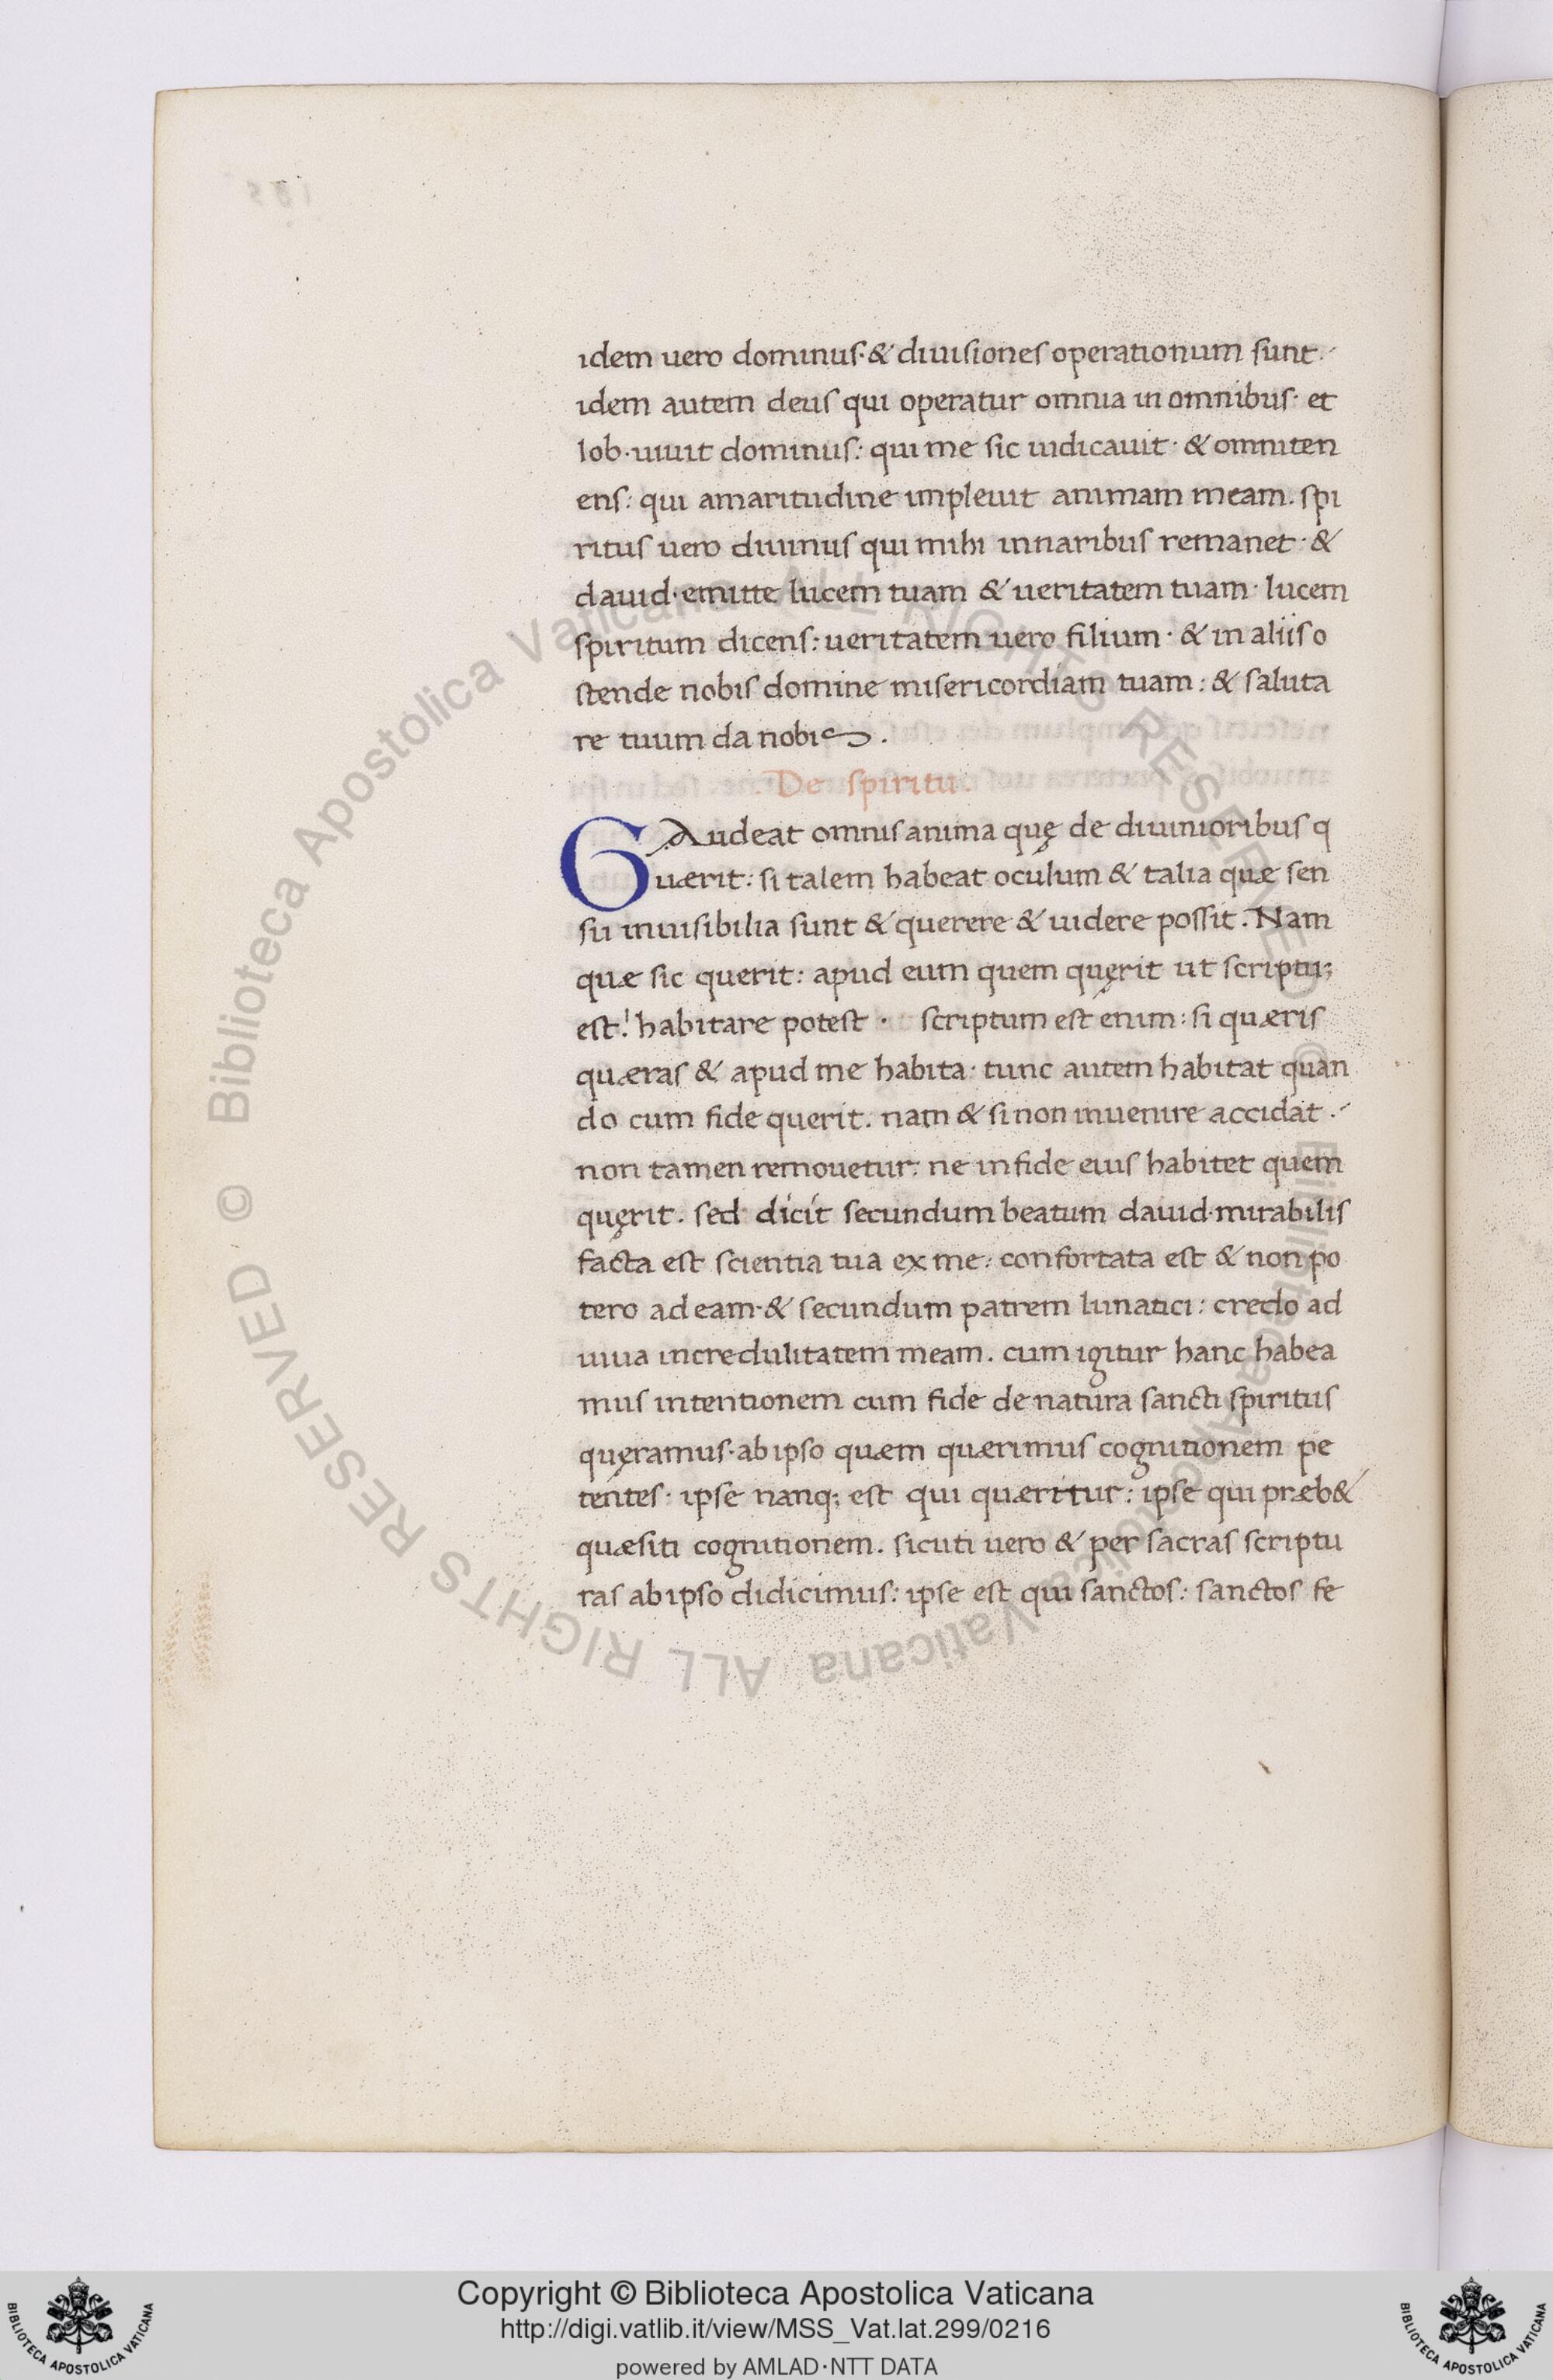 idem uero dominus·& diuisiones operationum sunt.
idem autem deus qui operatur omnia in omnibus· et
Iob·uiuit dominus: qui me sic iudicauit· & omniten
ens: qui amaritudine impleuit animam meam. spi
ritus uero diuinus qui mihi innaribus remanet·&
dauid·emitte lucem tuam & ueritatem tuam· lucem
spiritum dicens: ueritatem uero filium· & in aliis o
stende nobis domine misericordiam tuam: & saluta
re tuum da nobis.
.De spiritu.
GAudeat omnis anima quę de diuinioribus q
uærit: si talem habeat oculum & talia quæ sen
su inuisibilia sunt & querere & uidere possit. Nam
quæ sic querit: apud eum quem quęrit ut scriptu;
est! habitare potest · scriptum est enim: si quæris
quæras & apud me habita· tunc autem habitat quan
do cum fide querit. nam & si non inuenire accidat.
non tamen remouetur: ne in fide eius habitet quem
quęrit. sed dicit secundum beatum dauid·mirabilis
facta est scientia tua ex me: confortata est & non po
tero ad eam·& secundum patrem lunatici: credo ad
iuua incredulitatem meam. cum igitur hanc habea
mus intentionem cum fide de natura sancti spiritus
quęramus·ab ipso quæm quærimus cognitionem pe
tentes: ipse nanq; est qui quæritur: ipse qui præb&
quæsiti cognitionem. sicuti uero & per sacras scriptu
ras ab ipso didicimus: ipse est qui sanctos: sanctos fe
© Biblioteca Apostolica Vaticana ALL RIGHTS RESERVED
© Biblioteca Apostolica Vaticana ALL RIGHTS RESERVED
Copyright © Biblioteca Apostolica Vaticana
http://digi.vatlib.it/view/MSS_Vat.lat.299/0216
powered by AMLAD·NTT DATA
BIBLIOTECA APOSTOLICA VATICANA
BIBLIOTECA APOSTOLICA VATICANA